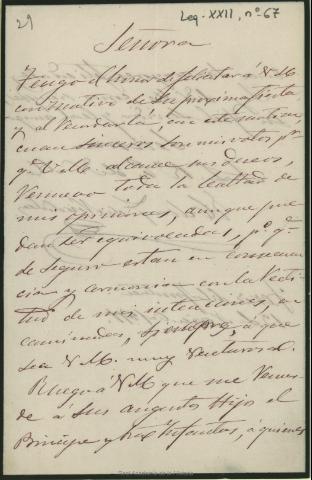 29
Leg. XXII, nº 67
Señora
Tengo el honor de felicitar á V M
con motivo de su proxima fiesta,
y al recordarla, con este motivo,
cuan sinceros son mis votos pr
qe V. M. alcance
renuevo toda la lealtad de
mis opiniones, aunque pue
dan ser equivocadas, po qe
de seguro estan en consonan
cia y armonia con la recti
tud de mis intenciones, en
caminadas, siempre, á que
sea V. M. muy venturosa.
Ruego á V M que me recuer
de á Sus augustos Hijos el
Principe y tres Infantas, á quienes